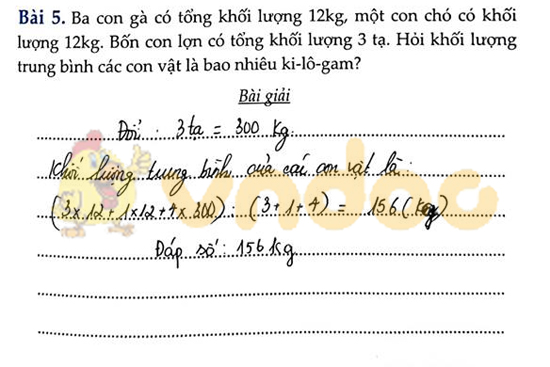 Bài 5. Ba con gà có tổng khối lượng 12kg, một con chó có khối
lượng 12kg. Bốn con lợn có tổng khối lượng 3 tạ. Hỏi khối lượng
trung bình các con vật là bao nhiêu ki-lô-gam?
Bài giải
Đổi : 3 tạ = 300 kg.
Khối lượng trung bình của các con vật là :
(3 x 12 + 1 x 12 + 4 x 300) : (3 + 1 + 4) = 156 (kg)
Đáp số : 156 kg
vndoc